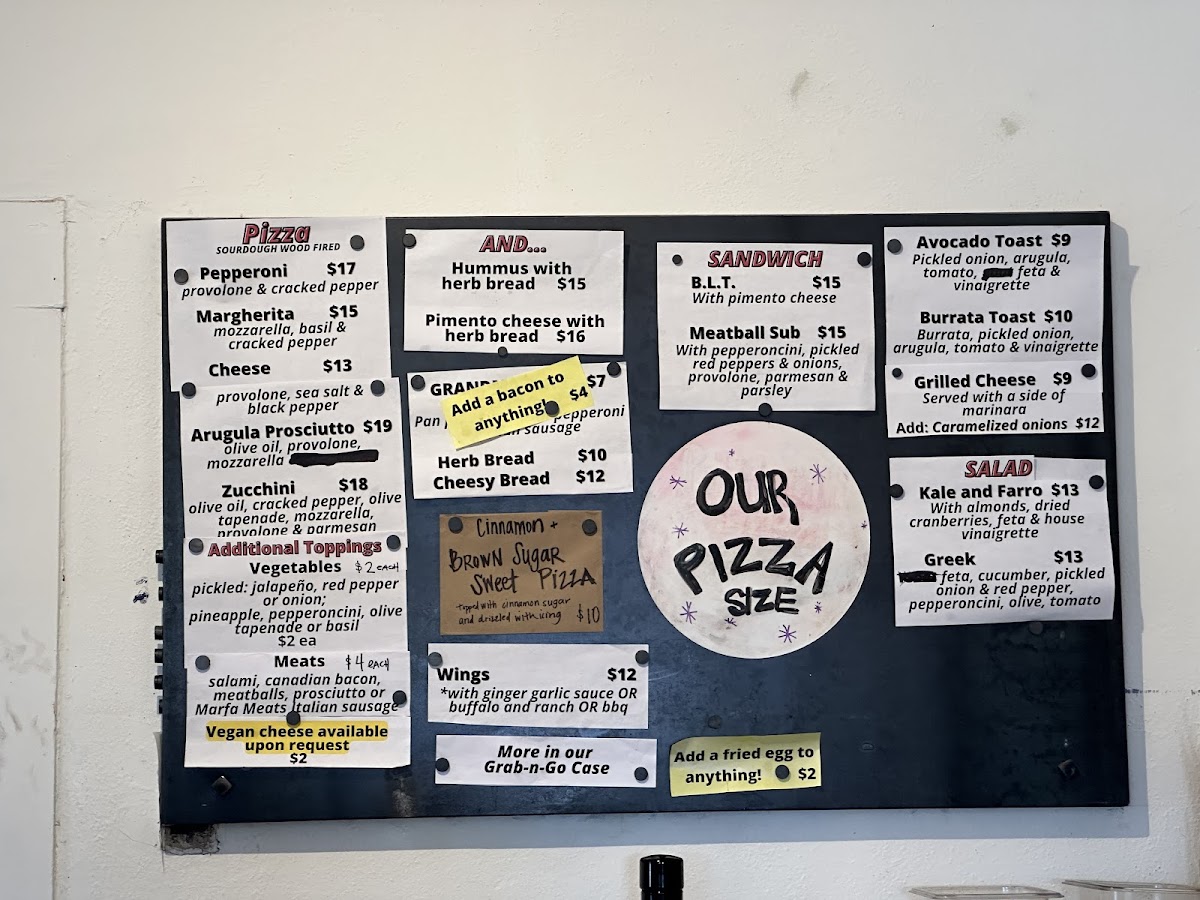 Pizza
SOURDOUGH WOOD FIRED
Pepperoni $17
provolone & cracked pepper
Margherita $15
mozzarella, basil &
cracked pepper
Cheese $13
provolone, sea salt &
black pepper
Arugula Prosciutto $19
olive oil, provolone,
mozzarella
Zucchini $18
olive oil, cracked pepper, olive
tapenade, mozzarella,
provolone & parmesan
Additional Toppings
Vegetables $2 EACH
pickled: jalapeño, red pepper
or onion;
pineapple, pepperoncini, olive
tapenade or basil
$2 ea
Meats $4 EACH
salami, canadian bacon,
meatballs, prosciutto or
Marfa Meats Italian sausage
Vegan cheese available
upon request
$2
AND...
Hummus with
herb bread $15
Pimento cheese with
herb bread $16
$7
Pan pepperoni
sausage
Add a bacon to
anything! $4
Herb Bread $10
Cheesy Bread $12
Cinnamon +
BROWN SUGAR
SWEET PIZZA
topped with cinnamon sugar
and drizeled with icing $10
Wings $12
*with ginger garlic sauce OR
buffalo and ranch OR bbq
More in our
Grab-n-Go Case
SANDWICH
B.L.T. $15
With pimento cheese
Meatball Sub $15
With pepperoncini, pickled
red peppers & onions,
provolone, parmesan &
parsley
OUR
PIZZA
SIZE
Add a fried egg to
anything! $2
Avocado Toast $9
Pickled onion, arugula,
tomato, feta &
vinaigrette
Burrata Toast $10
Burrata, pickled onion,
arugula, tomato & vinaigrette
Grilled Cheese $9
Served with a side of
marinara
Add: Caramelized onions $12
SALAD
Kale and Farro $13
With almonds, dried
cranberries, feta & house
vinaigrette
Greek $13
feta, cucumber, pickled
onion & red pepper,
pepperoncini, olive, tomato